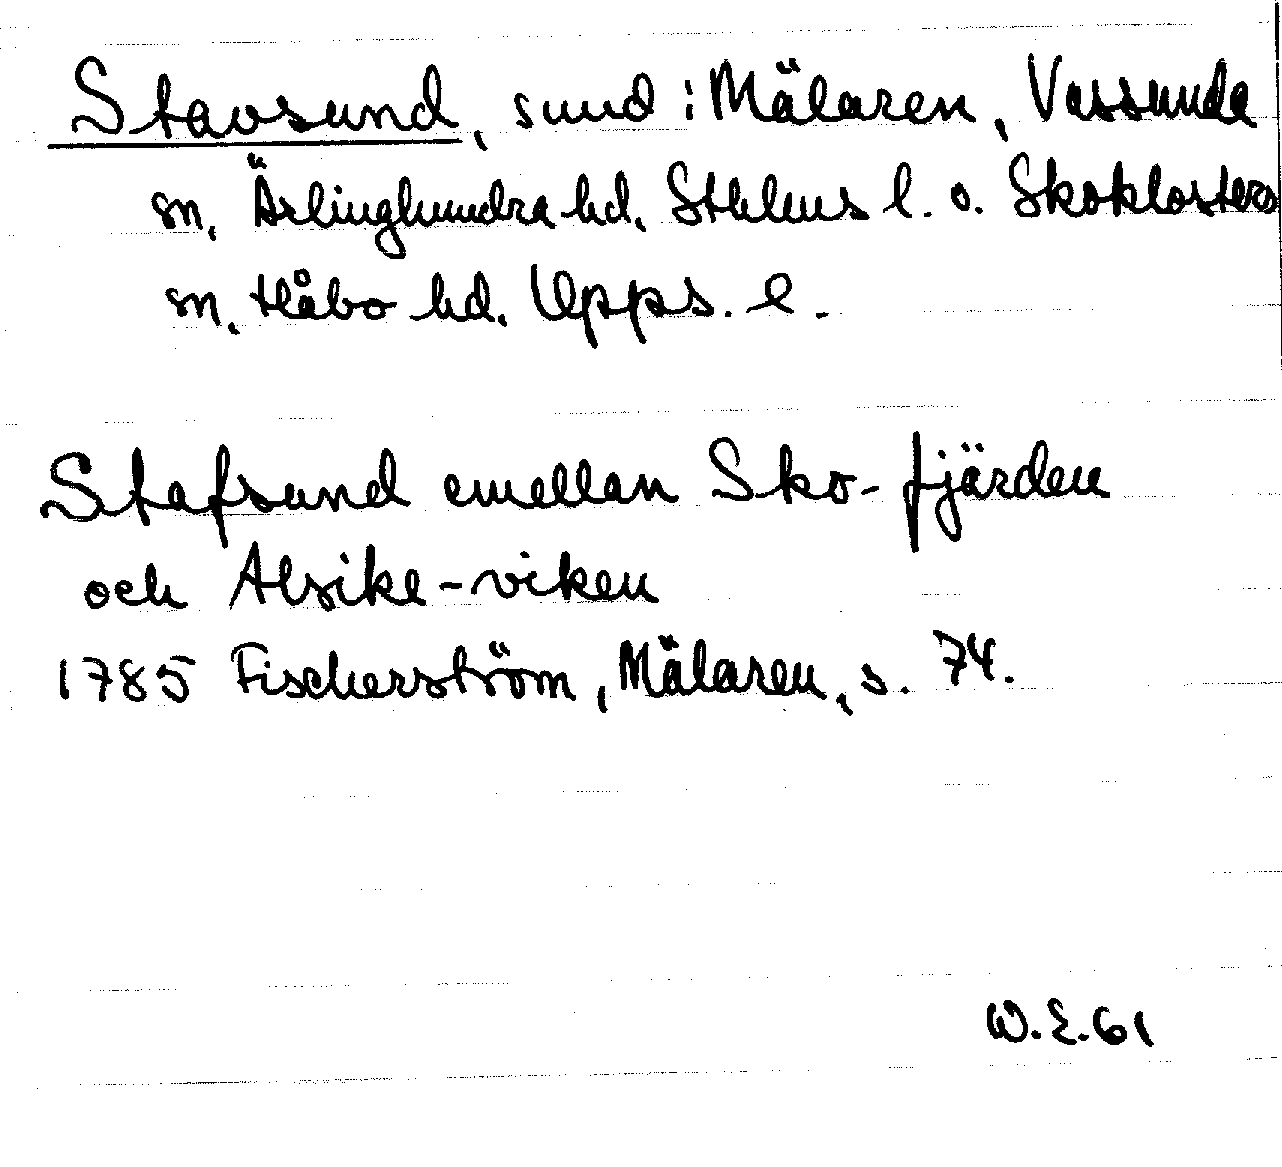 Stavsund, sund i Mälaren, Vassunda
sn, Ärlinghundra hd, Sthlms l. o. Skoklosters
sn, Håbo hd. Upps. l.
Stafsund emellan Sko-fjärden
och Alsike-viken
1785 Fischerström, Mälaren, s. 74.
W.E.61